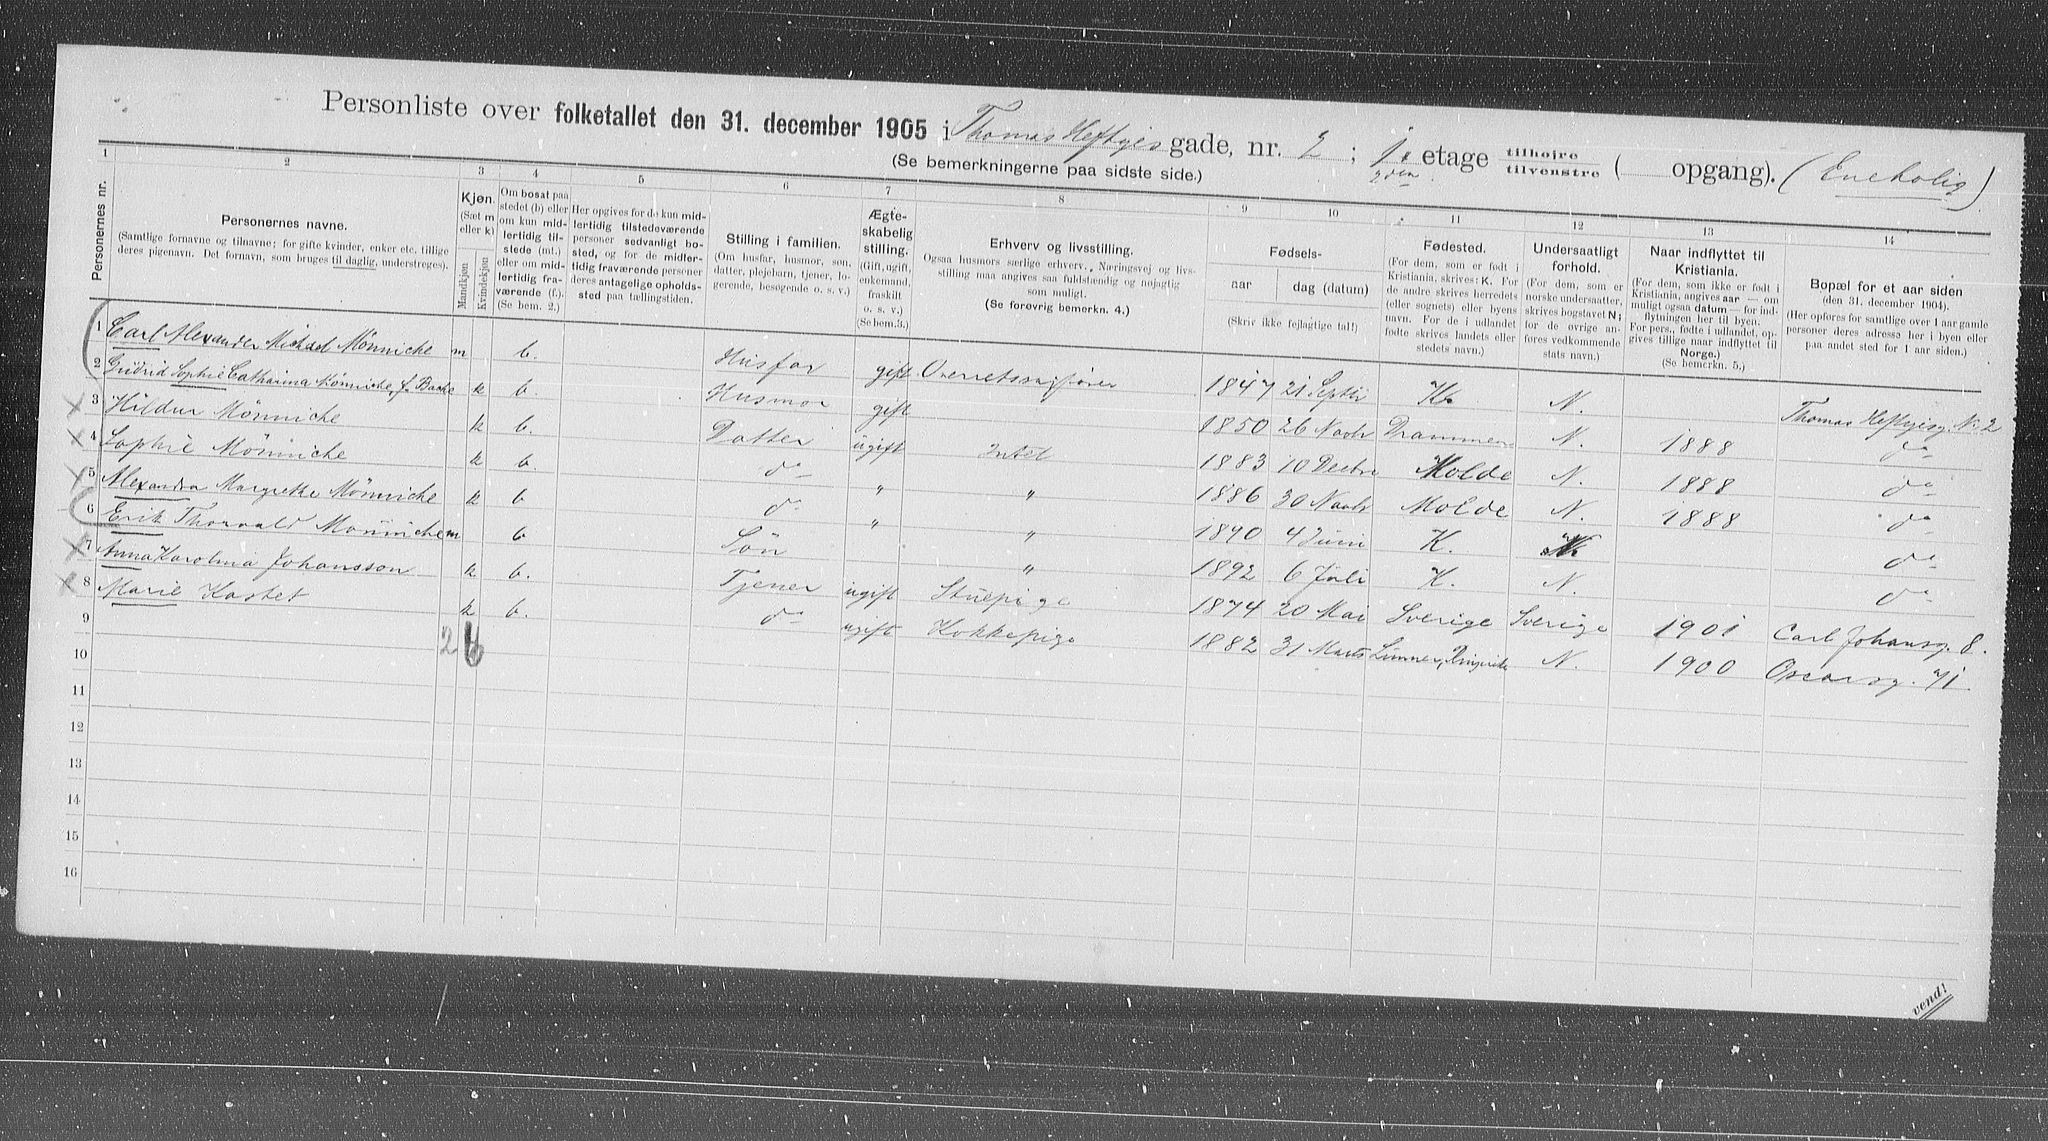 Personliste over folketallet den 31. december 1905 i Thomas Heftyes gade, nr. 2 ; 1. etage tilhøjre tilvenstre ( opgang). (Enebolig)
2den
(Se bemerkningerne paa sidste side.)
1 2 3 4 5 6 7 8 9 10 11 12 13 14
Personernes nr.
Personernes navne.
(Samtlige fornavne og tilnavne; for gifte kvinder, enker etc. tillige
deres pigenavn. Det fornavn, som bruges til daglig, understreges).
Kjøn.
(Sæt m
eller k)
Mandkjøn
Kvindekjøn
Om bosat paa
stedet (b) eller
om kun mid-
lertidig til-
stede (mt.)
eller om mid-
lertidig fra-
værende (f.).
(Se bem. 2.)
Her opgives for de kun mid-
lertidig tilstedeværende
personer sedvanligt bo-
sted, og for de midler-
tidig fraværende personer
deres antagelige opholds-
sted paa tællingstiden.
Stilling i familien.
(Om husfar, husmor, søn,
datter, plejebarn, tjener, lo-
gerende, besøgende o. s. v.)
Ægte-
skabelig
stilling.
(Gift, ugift,
enkemand,
fraskilt
o. s. v.)
(Se bem. 3.)
Erhverv og livsstilling.
Ogsaa husmors særlige erhverv. Næringsvej og livs-
stilling maa angives saa fuldstændig og nøjagtig
som muligt.
(Se forøvrig bemerkn. 4.)
Fødsels-
aar dag (datum)
(Skriv ikke fejlagtige tal!)
Fødested.
(For dem, som er født i
Kristiania, skrives: K. For
de andre skrives herredets
(eller sognets) eller byens
navn. For de i udlandet
fødte skrives landets eller
stedets navn.)
Undersaatligt
forhold.
(For dem, som er
norske undersaatter,
skrives bogstavet N;
for de øvrige an-
føres vedkommende
stats navn.)
Naar indflyttet til
Kristiania.
(For dem, som ikke er født i
Kristiania, angives aar — om
muligt ogsaa datum — for ind-
flytningen her til byen.
For pers., født i udlandet, op-
gives tillige naar indflyttet til
Norge.)
(Se bemerkn. 5.)
Bopæl for et aar siden
(den 31. december 1904).
(Her opføres for samtlige over 1 aar gamle
personer deres adresse her i byen eller
paa andet sted for 1 aar siden.)
1 Carl Alexander Michael Mönniche m b. Husfar gift Overretssagfører 1847 21 Septbr K. N. Thomas Heftyesg. N: 2
2 Gudrid Sophie Catharina Mönniche, f. Bache k b. Husmor gift 1850 26 Novbr Drammen N. 1888 do
3 Hildur Mönniche k b. Datter ugift Intet 1883 10 Decbr Molde N. 1888 do
4 Sophie Mönniche k b. do " " 1886 30 Novbr Molde N. 1888 do
5 Alexandra Margrethe Mönniche k b do " " 1890 4 Juni K. N. do
6 Erik Thorvald Mönniche m b Søn " 1892 6 Juli K. N. do
7 Anna Karolina Johansson k b. Tjener ugift Stuepige 1874 20 Mai Sverige Sverige 1901 Carl Johansg. 8.
8 Marie Kastet k b. do ugift Kokkepige 1882 31 Marts Ringerike N. 1900 Oscarsg. 71.
9
2 6
10
11
12
13
14
15
16
vend!